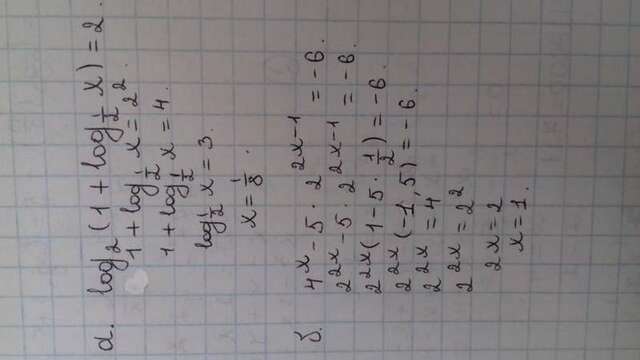 а. log₂(1 + log_½ x) = 2
1 + log_½ x = 2².
1 + log_½ x = 4.
log_½ x = 3.
x = 1/8.
б.
4ˣ - 5 · 2²ˣ⁻¹ = -6.
2²ˣ - 5 · 2²ˣ⁻¹ = -6.
2²ˣ(1 - 5 · 1/2) = -6.
2²ˣ(-1,5) = -6.
2²ˣ = 4.
2²ˣ = 2²
2x = 2
x = 1.